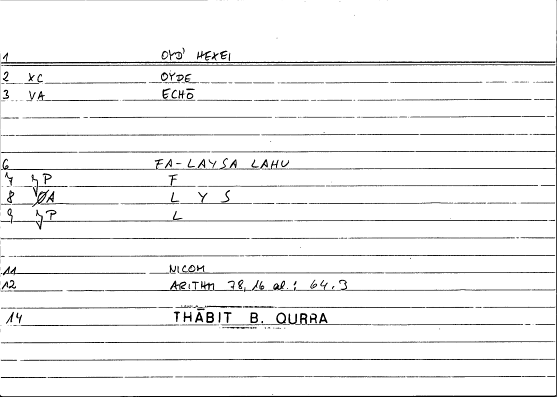 1 OYD' HEXEI
2 XC OYDE
3 VA ECHŌ
6 FA-LAYSA LAHU
7 zP F
8 ØA L Y S
9 zP L
11 NICOM
12 ARITHM 78,16 al.: 64.3
14 THĀBIT B. QURRA